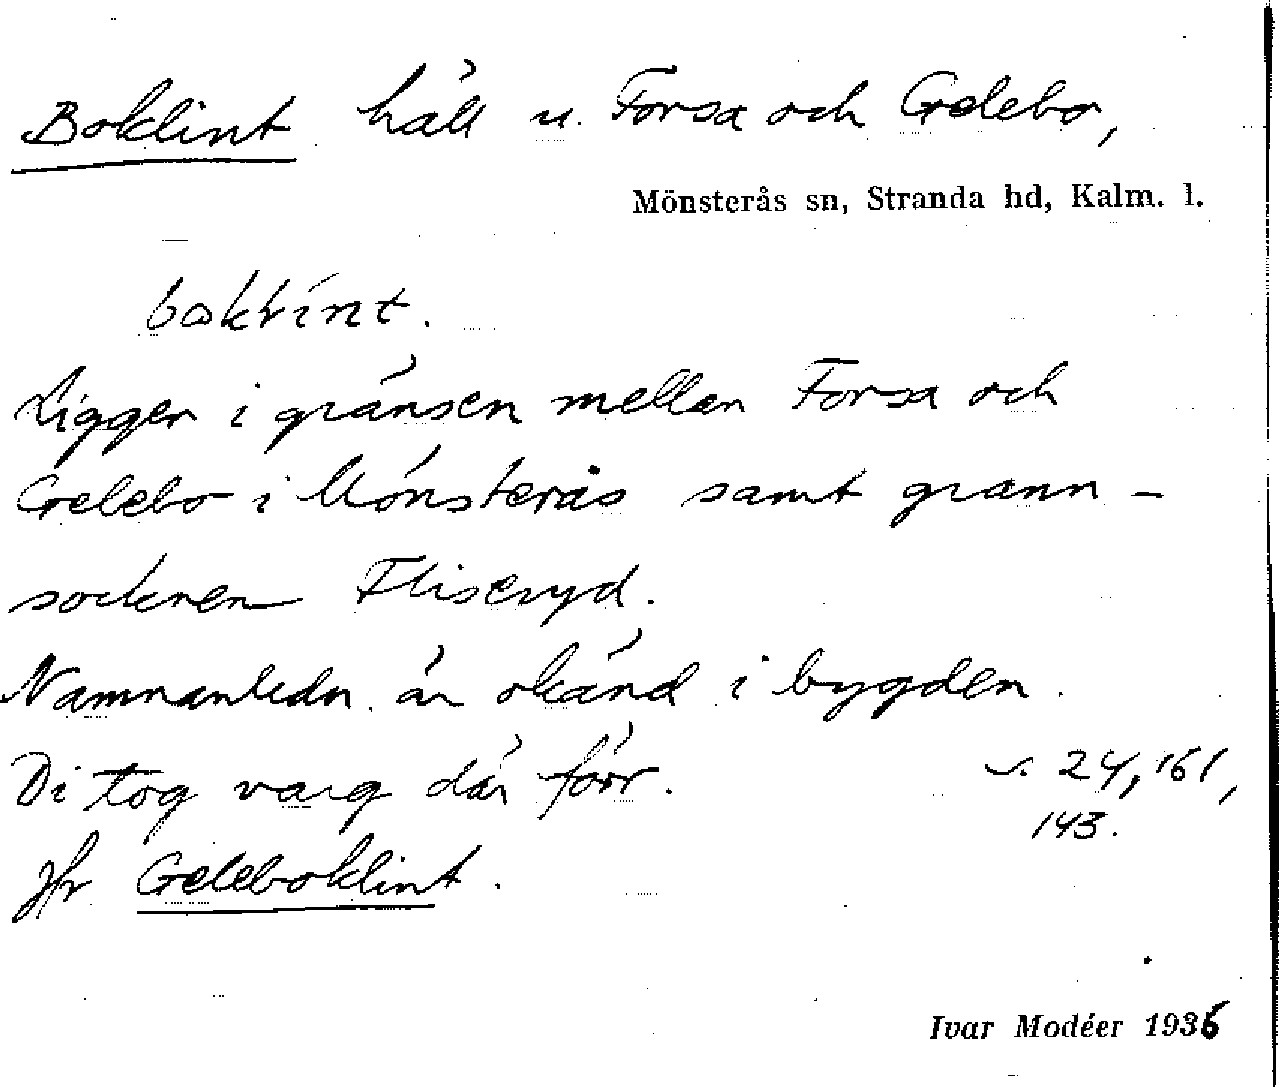 Boklint häll u. Forsa och Gelebo,
Mönsterås sn, Stranda hd, Kalm. l.
boklint.
Ligger i gränsen mellan Forsa och
Gelebo i Mönsterås samt grann-
socknen Fliseryd.
Namnanledn. är okänd i bygden.
Di tog varg där förr.
s. 24, 161,
143.
Jfr Geleboklint.
Ivar Modéer 1936